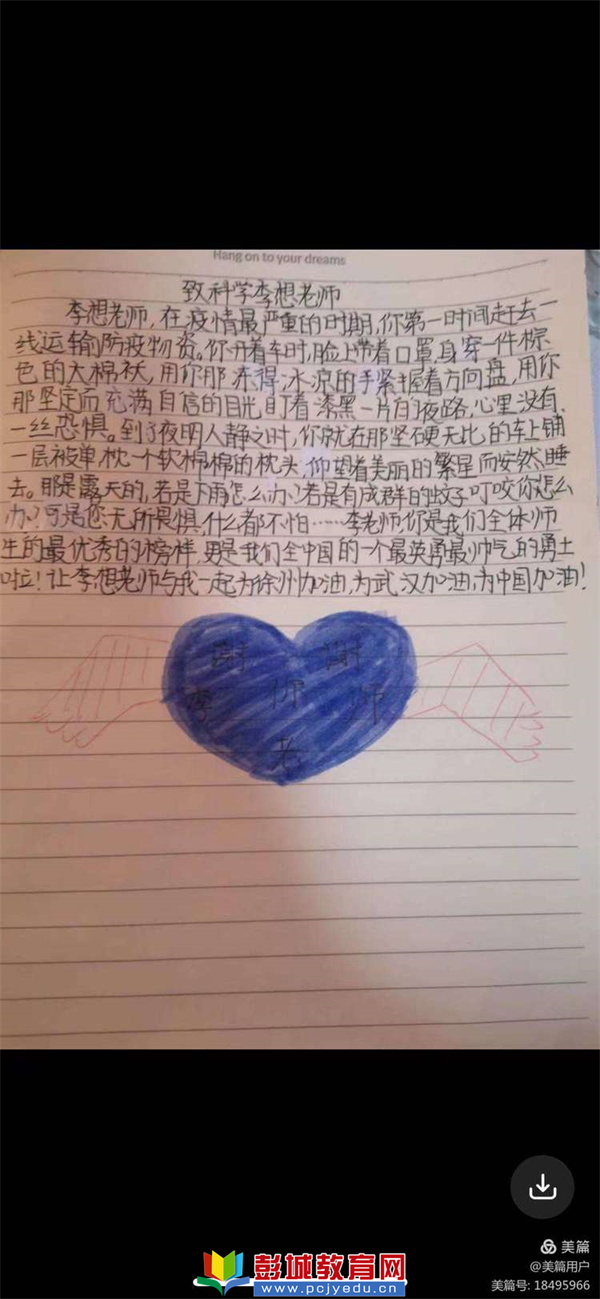 Hang on to your dreams
致科学李想老师
李想老师,在疫情最严重的时期,你第一时间赶去一
线运输防疫物资。你开着车时,脸上带着口罩,身穿一件棕
色的大棉袄,用你那冻得冰凉的手紧握着方向盘,用你
那坚定而充满自信的目光盯着漆黑一片的夜路,心里没有
一丝恐惧。到了夜明人静之时,你就在那坚硬无比的车上铺
一层被单,枕一个软棉棉的枕头,仰望着美丽的繁星而安然睡
去。那是露天的,若是下雨怎么办?若是有成群的蚊子叮咬你怎么
办?可是您无所畏惧,什么都不怕……李老师,你是我们全体师
生的最优秀的榜样,更是我们全中国的一个最英勇最帅气的勇士
啦!让李想老师与我一起为徐州加油,为武汉加油,为中国加油!
谢 谢
李 你 师
老
美篇
@美篇用户
美篇号: 18495966
彭城教育网
www.pcjyedu.cn